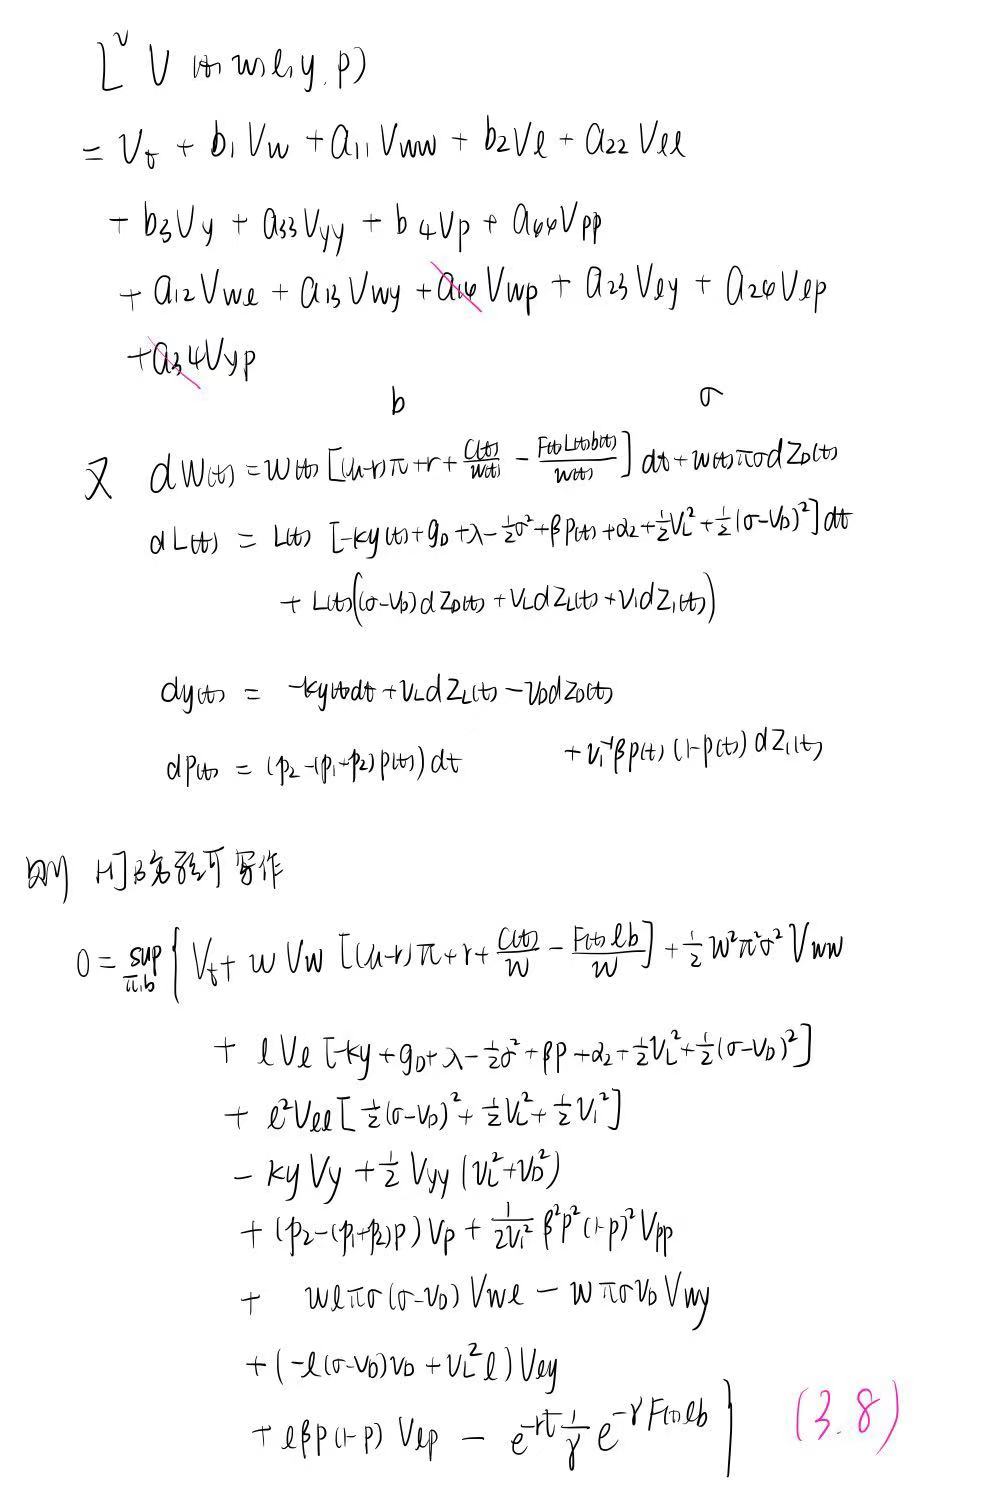 L^ν V (t, w, l, y, p)
= V_t + b_1 V_w + a_11 V_ww + b_2 V_l + a_22 V_ll
+ b_3 V_y + a_33 V_yy + b_4 V_p + a_44 V_pp
+ a_12 V_wl + a_13 V_wy + a_14 V_wp + a_23 V_ly + a_24 V_lp
+ a_34 V_yp
b σ
又 dW(t) = W(t) [(μ-r)π + r + C(t)/W(t) - F(t)L(t)b(t)/W(t)] dt + W(t)πσ dZ_D(t)
dL(t) = L(t) [-ky(t) + g_D + λ - ½σ² + βp(t) + α_2 + ½ν_L² + ½(σ-ν_D)²] dt
+ L(t)((σ-ν_D) dZ_D(t) + ν_L dZ_L(t) + ν_1 dZ_1(t))
dy(t) = -ky(t)dt + ν_L dZ_L(t) - ν_D dZ_D(t)
dP(t) = (p_2 - (p_1+p_2)p(t)) dt + ν_1^-1 βp(t)(1-p(t)) dZ_1(t)
则 HJB方程可写作
0 = sup_{π,b} { V_t + w V_w [(μ-r)π + r + C(t)/w - F(t)lb/w] + ½ w²π²σ² V_ww
+ l V_l [-ky + g_D + λ - ½σ² + βp + α_2 + ½ν_L² + ½(σ-ν_D)²]
+ l² V_ll [½(σ-ν_D)² + ½ν_L² + ½ν_1²]
- ky V_y + ½ V_yy (ν_L² + ν_D²)
+ (p_2 - (p_1+p_2)p) V_p + 1/(2ν_1²) β²p²(1-p)² V_pp
+ wlπσ(σ-ν_D) V_wl - wπσν_D V_wy
+ (-l(σ-ν_D)ν_D + ν_L² l) V_ly
+ lβp(1-p) V_lp - e^{-rt} 1/γ e^{-γF(t)lb} } (3.8)